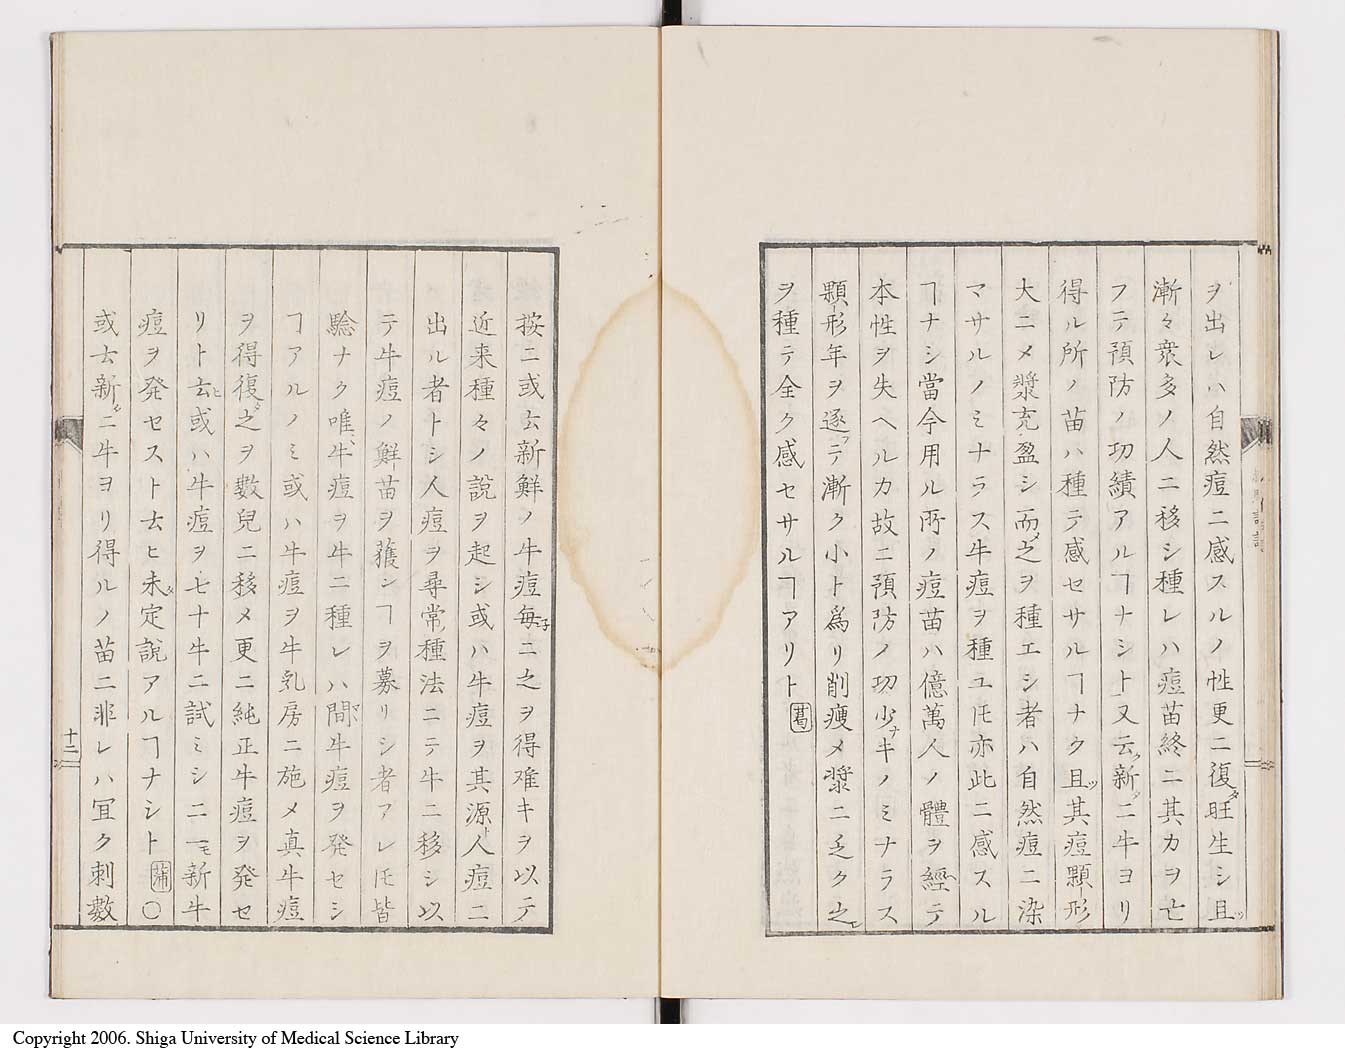 ヲ出レハ自然痘ニ感スルノ性更ニ復タ旺生シ且ツ
漸々衆多ノ人ニ移シ種レハ痘苗終ニ其力ヲ亡
フテ預防ノ功績アルヿナシト又云フ新ニ牛ヨリ
得ル所ノ苗ハ種テ感セサルヿナク且ツ其痘顆形
大ニメ漿充盈シ而メ之ヲ種エシ者ハ自然痘ニ染
マサルノミナラス牛痘ヲ種ユ𪜈亦此ニ感スル
ヿナシ當今用ル所ノ痘苗ハ億萬人ノ體ヲ經テ
本性ヲ失ヘルカ故ニ預防ノ功少ナキノミナラス
顆形年ヲ逐フテ漸ク小ト為リ削痩メ漿ニ乏ク之
ヲ種テ全ク感セサルヿアリト葛
按ニ或云新鮮ノ牛痘毎子ニ之ヲ得難キヲ以テ
近来種々ノ説ヲ起シ或ハ牛痘ヲ其源ト人痘ニ
出ル者トシ人痘ヲ尋常種法ニテ牛ニ移シ以
テ牛痘ノ鮮苗ヲ獲ンヿヲ募リシ者アレ𪜈皆
驗ナク唯牛痘ヲ牛ニ種レハ間牛痘ヲ発セシ
ヿアルノミ或ハ牛痘ヲ牛乳房ニ施メ真牛痘
ヲ得復タ之ヲ數兒ニ移メ更ニ純正牛痘ヲ発セ
リト云ヒ或ハ牛痘ヲ七十牛ニ試ミシニ一モ新牛
痘ヲ発セスト云ヒ未タ定説アルヿナシト蒲〇
或云新タニ牛ヨリ得ルノ苗ニ非レハ宜ク刺數
十二